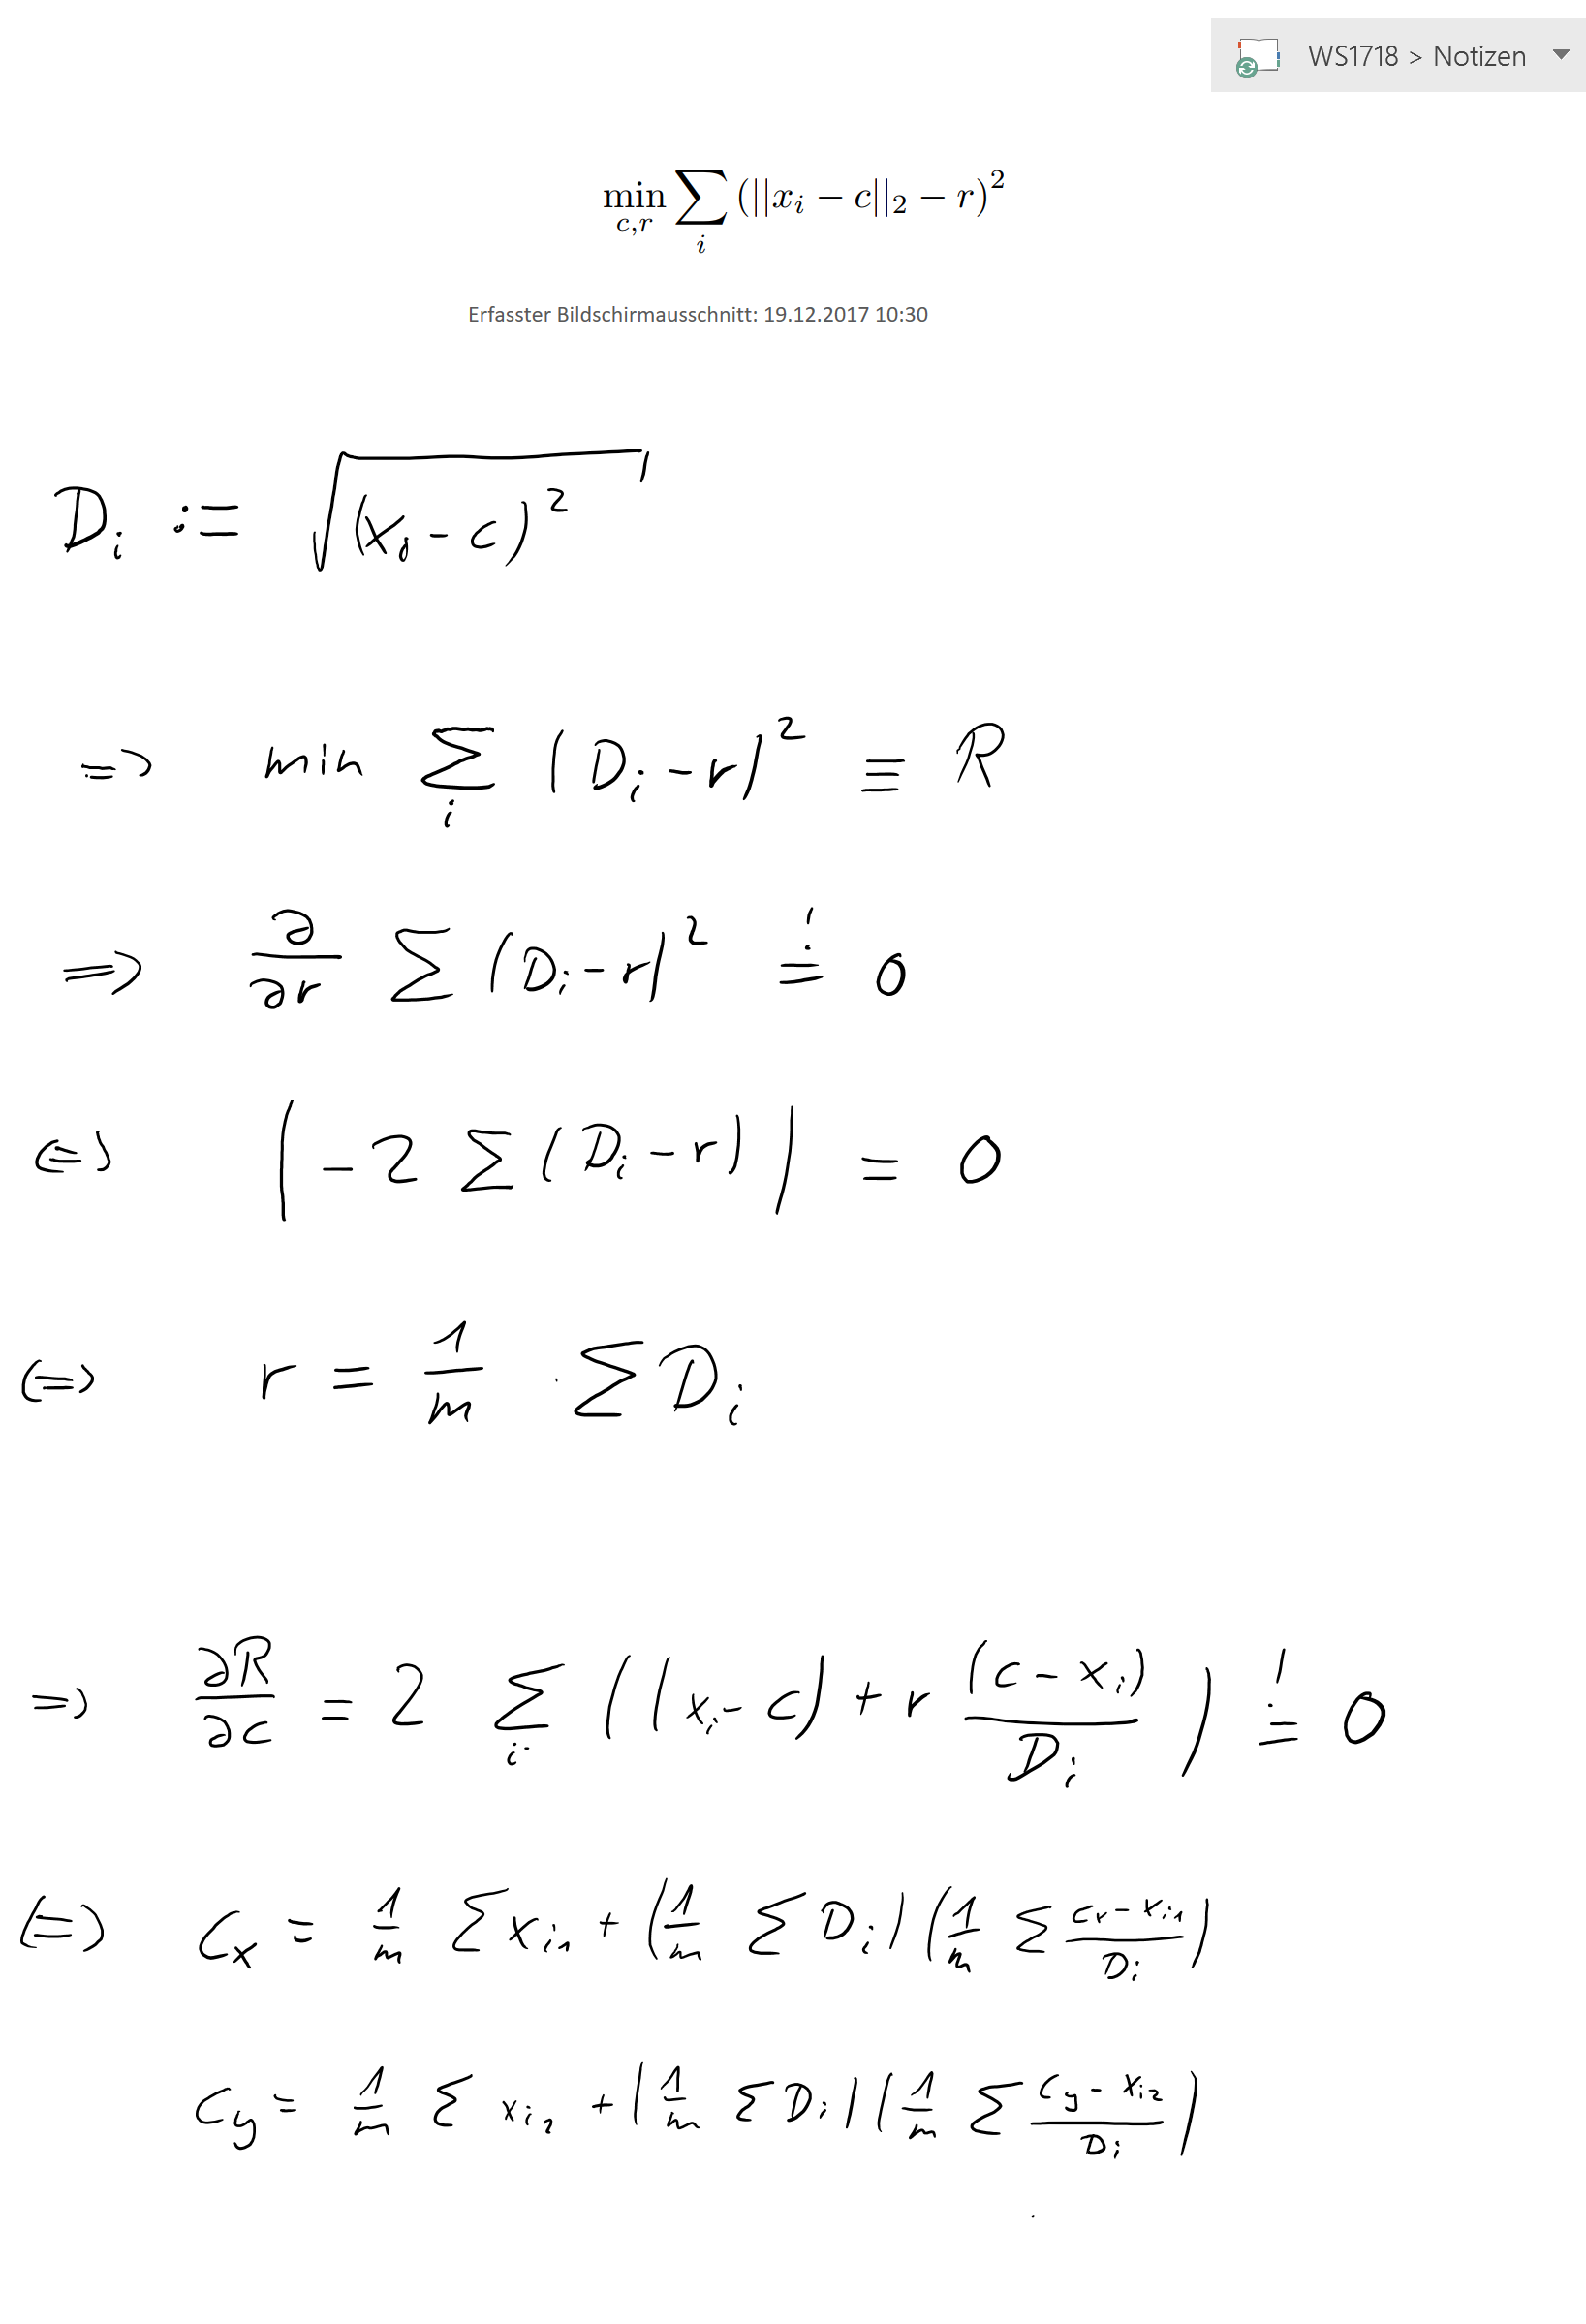 WS1718 > Notizen
min_{c,r} ∑_i (||x_i − c||_2 − r)^2
Erfasster Bildschirmausschnitt: 19.12.2017 10:30
D_i := √((x_i − c)^2)
=> min ∑_i (D_i − r)^2 ≡ R
=> ∂/∂r ∑ (D_i − r)^2 =! 0
<=> (−2 ∑ (D_i − r)) = 0
<=> r = 1/m · ∑ D_i
=> ∂R/∂c = 2 ∑_i ((x_i − c) + r (c − x_i)/D_i) =! 0
<=> c_x = 1/m ∑ x_{i1} + (1/m ∑ D_i)(1/m ∑ (c_x − x_{i1})/D_i)
c_y = 1/m ∑ x_{i2} + (1/m ∑ D_i)(1/m ∑ (c_y − x_{i2})/D_i)